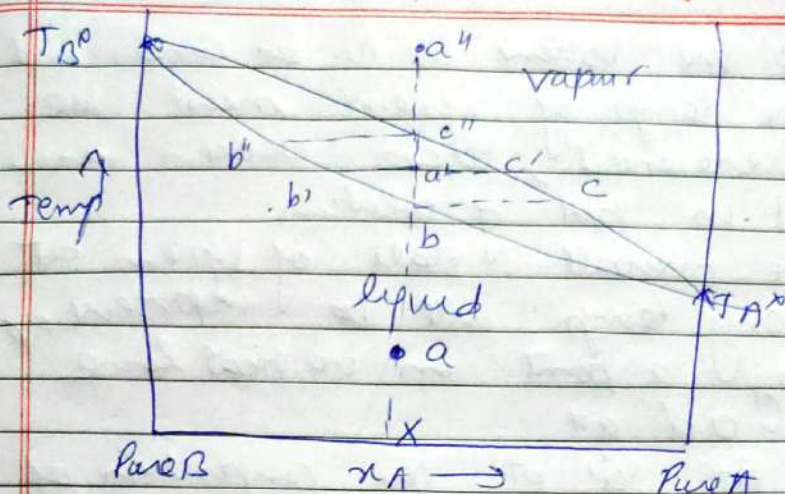 T_B°
a"
Vapour
c"
b"
a'
c'
Temp
b'
c
b
liquid
T_A°
a
X
Pure B
x_A
Pure A